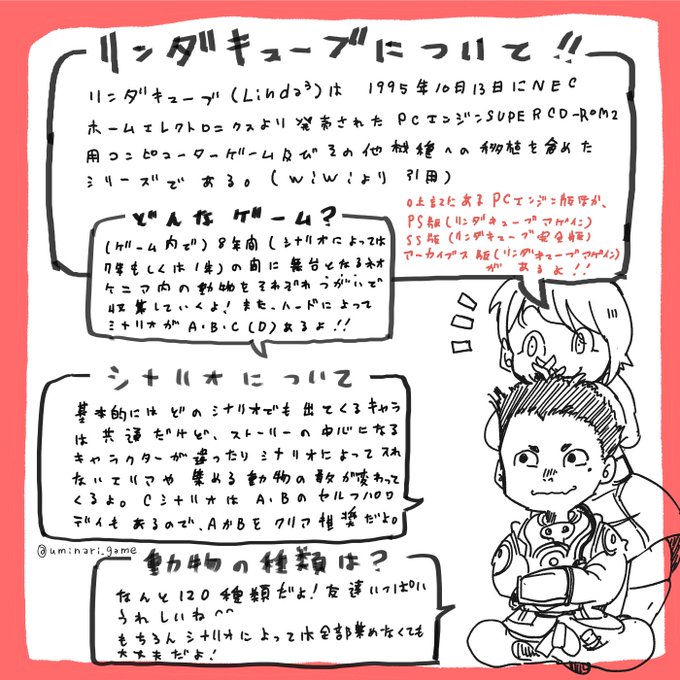 リンダキューブについて!!
リンダキューブ(Linda³)は 1995年10月13日にNEC
ホームエレクトロニクスより発売された PCエンジンSUPER CD-ROM2
用コンピューターゲーム及びその他機種への移植を含めた
シリーズである。(wiwiより引用)
○上記にあるPCエンジン版ほか、
PS版(リンダキューブアゲイン)
SS版(リンダキューブ完全版)
アーカイブス版(リンダキューブアゲイン)
があるよ!!
どんなゲーム?
(ゲーム内で)8年間(シナリオによっては
7年もしくは1年)の間に舞台となるネオ
ケニア内の動物をそれぞれつがいで
収集していくよ!また、ハードによって
シナリオがA・B・C(D)あるよ!!
シナリオについて
基本的にはどのシナリオでも出てくるキャラ
は共通だけど、ストーリーの中心になる
キャラクターが違ったりシナリオによって入れ
ないエリアや集める動物の数が変わって
くるよ。CシナリオはA・Bのセルフパロ
ディもあるので、AかBをクリア推奨だよ。
@uminari_game
動物の種類は?
なんと120種類だよ!友達いっぱい
うれしいね^^
もちろんシナリオによっては全部集めなくても
大丈夫だよ!